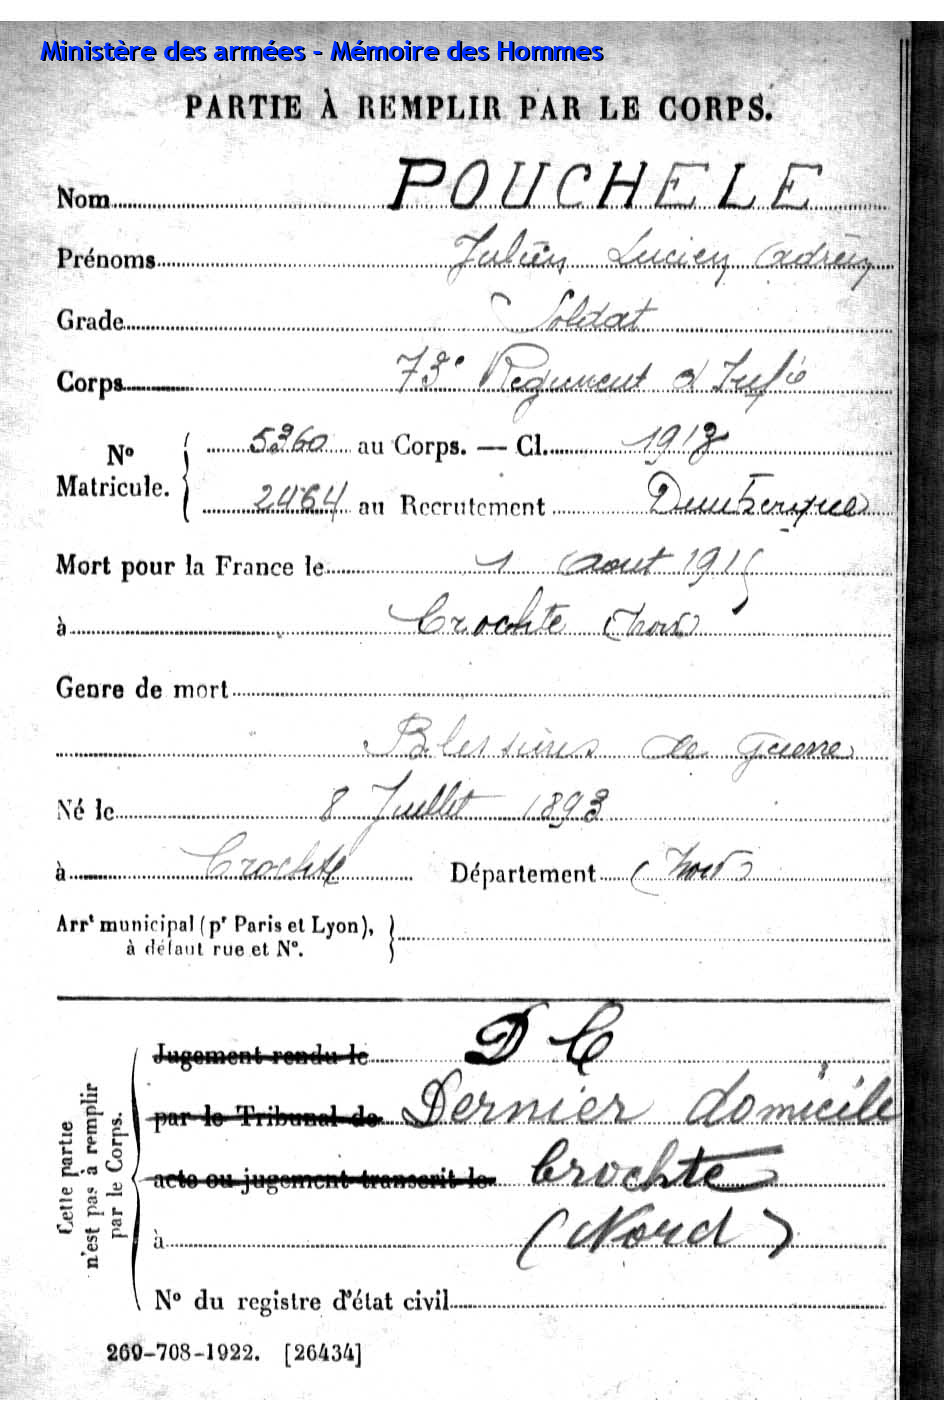 Ministère des armées - Mémoire des Hommes
PARTIE À REMPLIR PAR LE CORPS.
Nom POUCHELE
Prénoms Julien Lucien Adrien
Grade Soldat
Corps 73e Régiment d'Infie
No Matricule. 5360 au Corps. — Cl. 1913
2464 au Recrutement Dunkerque
Mort pour la France le 1 aout 1915
à Crochte (Nord)
Genre de mort
Blessures de Guerre
Né le 8 Juillet 1893
à Crochte Département (Nord)
Arrt municipal (pr Paris et Lyon),
à défaut rue et No.
Cette partie n'est pas à remplir par le Corps.
Jugement rendu le D C
par le Tribunal de Dernier domicile
acte ou jugement transcrit le Crochte
à (Nord)
No du registre d'état civil
269-708-1922. [26434]